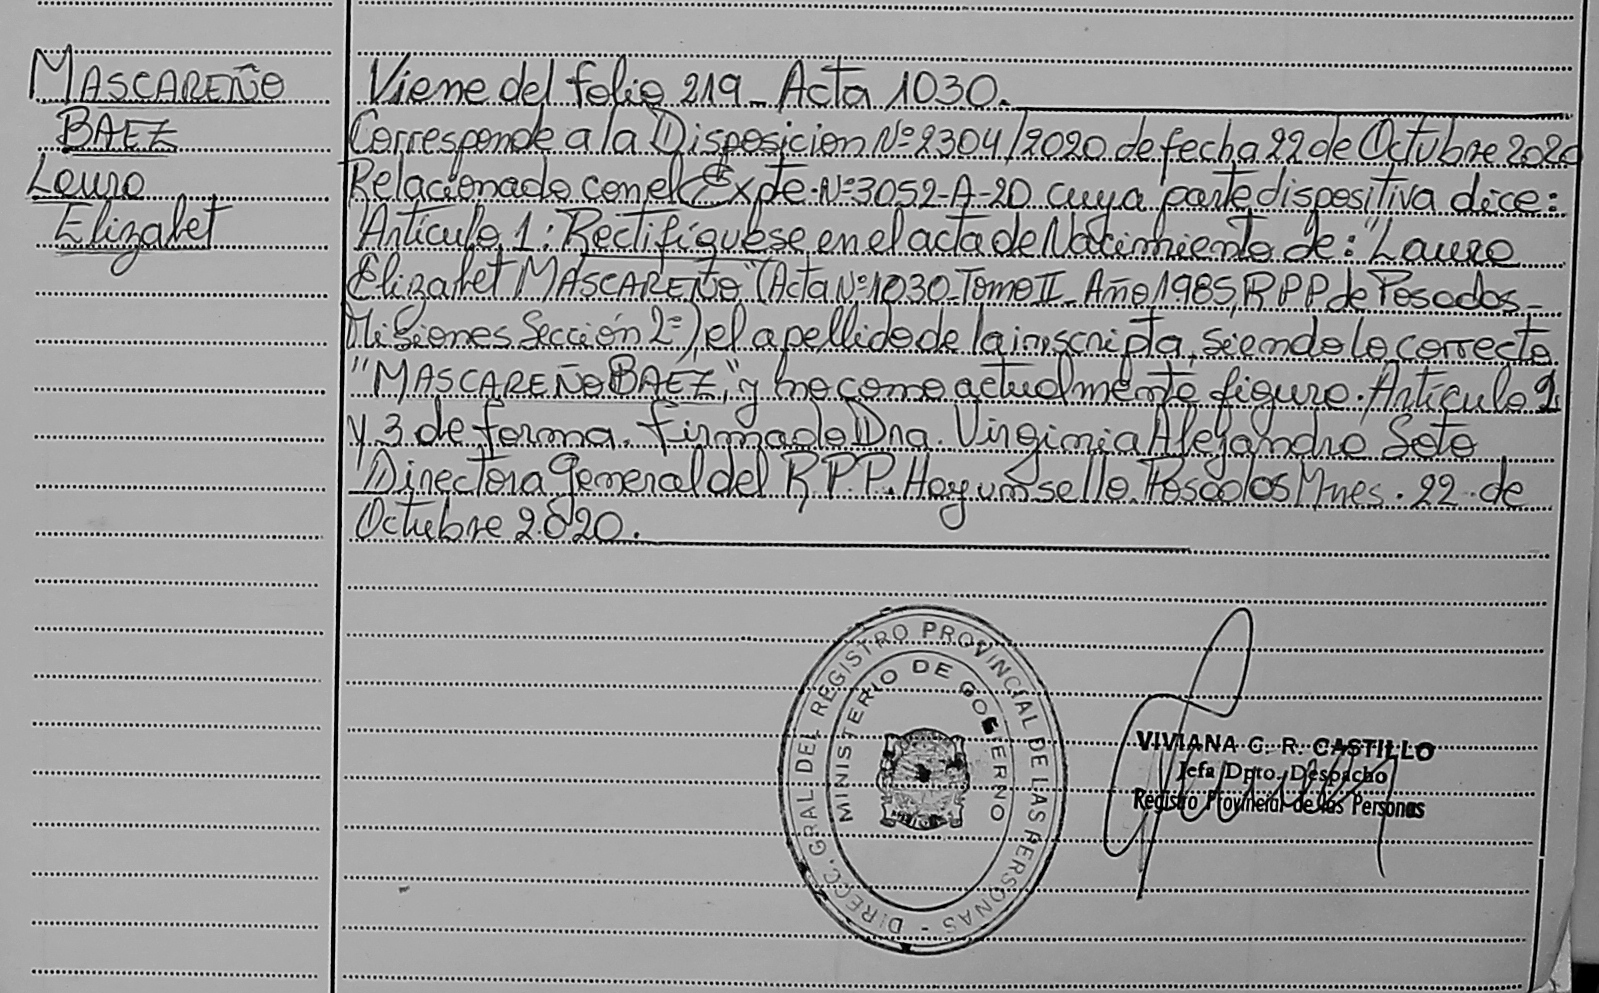 MASCAREÑO
BAEZ
Laura
Elizabet
Viene del folio 219 - Acta 1030.
Corresponde a la Disposicion Nº 2304/2020 de fecha 22 de Octubre 2020
Relacionado con el Expte. Nº 3052-A-20 cuya parte dispositiva dice:
Artículo 1: Rectifíquese en el acta de Nacimiento de: "Laura
Elizabet MASCAREÑO" (Acta Nº 1030 - Tomo II - Año 1985, R.P.P. de Posadas -
Misiones Sección 2º), el apellido de la inscripta, siendo lo correcto
"MASCAREÑO BAEZ," y no como actualmente figura. Artículo 2
y 3 de forma. Firmado Dra. Virginia Alejandra Soto
Directora General del R.P.P. Hay un sello. Posadas Mnes. 22 de
Octubre 2020.
DIRECC. GRAL. DEL REGISTRO PROVINCIAL DE LAS PERSONAS -
MINISTERIO DE GOBIERNO
VIVIANA C. R. CASTILLO
Jefa Dpto. Despacho
Registro Provincial de las Personas